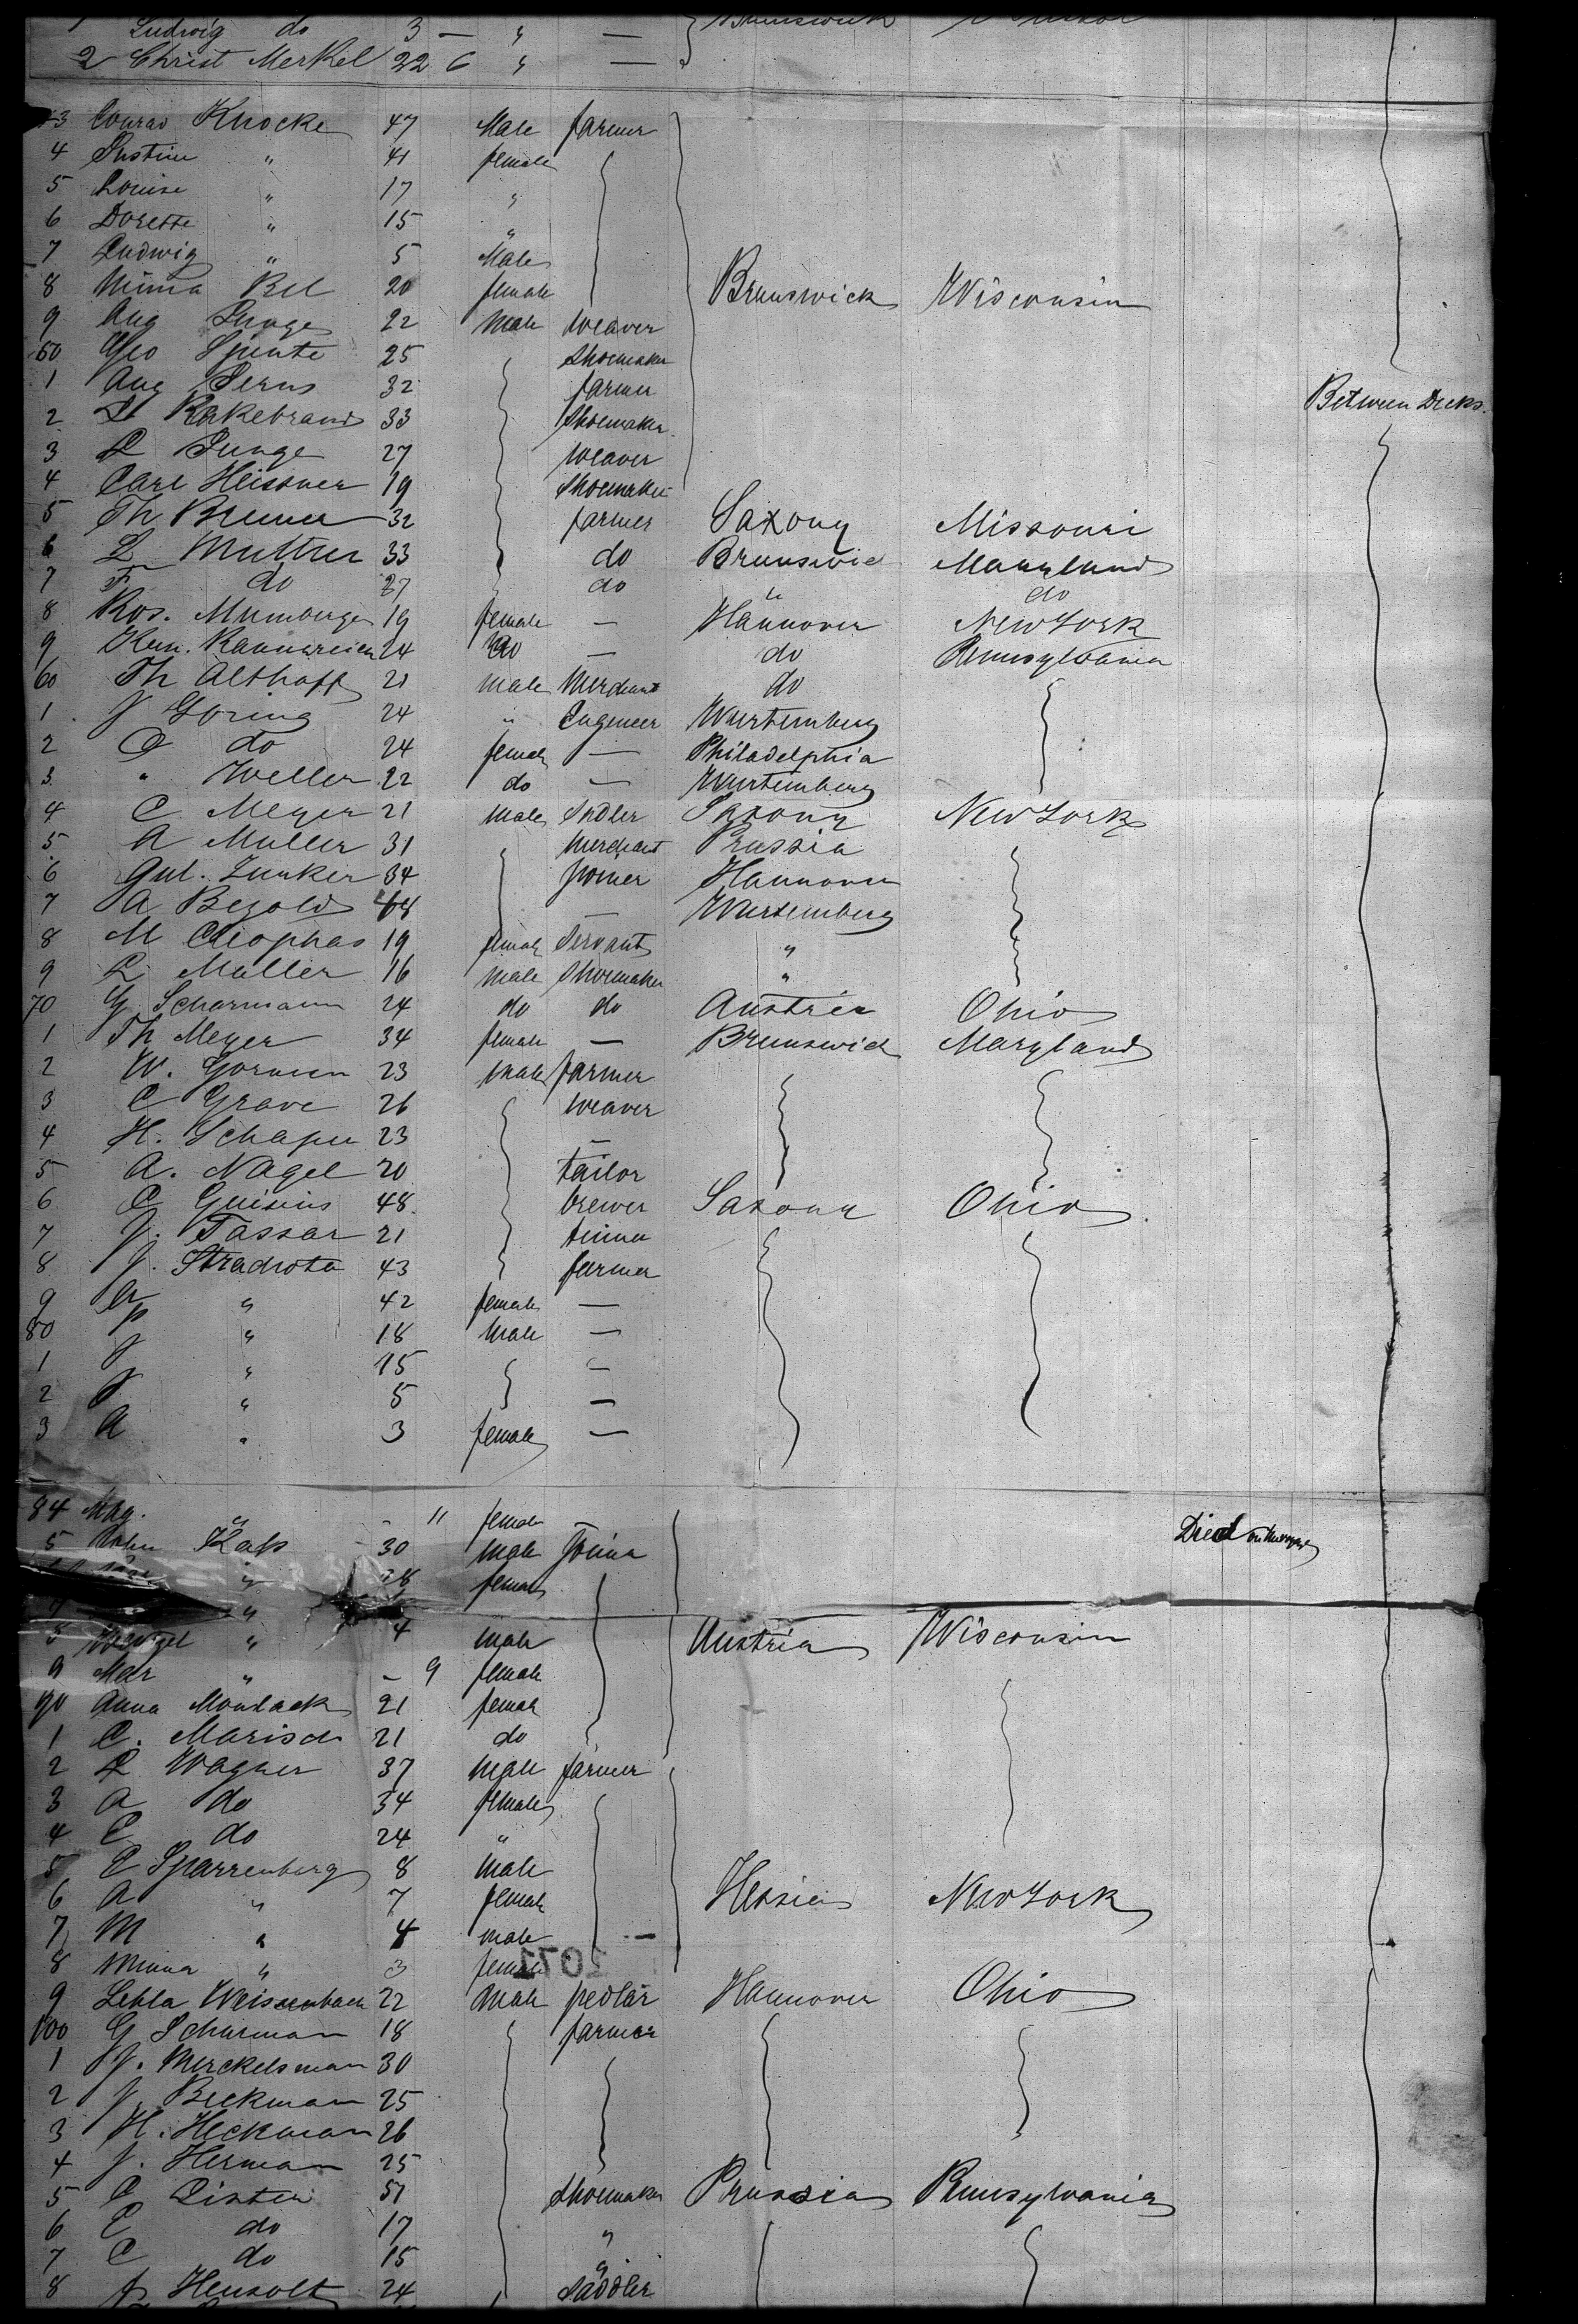 1 Ludwig do 3 — " — Brunswick
2 Christ Merkel 22 6 " —
43 Conrad Knocke 47 Male farmer
4 " 41 female
5 Louise " 17 "
6 Dorette " 15 "
7 Ludwig " 5 Male
8 Minna Bel 20 female Brunswick Wisconsin
9 Aug Junge 22 Male weaver
50 Geo 25 Shoemaker
1 Aug 32 farmer Between Decks.
2 Rakebrand 33 Shoemaker
3 L Junge 27 weaver
4 Carl Heissner 19 Shoemaker
5 Th Bremer 32 farmer Saxony Missouri
6 L 33 do Brunswick Maryland
7 F do 27 do " do
8 Ros. 19 female — Hannover New York
9 24 do — do Pennsylvania
60 Th Althoff 21 male Merchant do
1 J Goring 24 " Engineer Wurtemberg
2 C do 24 female — Philadelphia
3 " Weller 22 do — Wurtemberg
4 C Meyer 21 male Sadler Saxony New York
5 A Muller 31 merchant Prussia
6 Gul. Junker 34 Hannover
7 A Bezold 48 — Wurtemberg
8 M Cleophas 19 female Servant "
9 L Muller 16 male Shoemaker "
70 G. Scharmann 24 do do Austria Ohio
1 Th Meyer 34 female — Brunswick Maryland
2 W. 23 male farmer
3 C Grave 26 weaver
4 H. Schaper 23 —
5 A. Nagel 20 tailor
6 C 48 brewer Saxony Ohio
7 J. Tassar 21
8 J. Stradrota 43 farmer
9 A " 42 female —
80 P " 18 Male —
1 J " 15 —
2 J " 5 —
3 A " 3 female —
84 Mag. " - 11 female
5 John Kap 30 male Died
" 28 female
" 4
8 Wenzel " 4 male Austria Wisconsin
9 Mar " - 9 female
90 Anna 21 female
1 C. 21 do
2 L Wagner 37 Male farmer
3 A do 34 female
4 C do 24 "
5 C Sparrenberg 8 Male
6 A " 7 female Hessia New York
7 M " 4 male —
8 Minna " 3 female
9 22 Male pedlar Hannover Ohio
100 G Schurman 18 farmer
1 J. Merckelsman 30
2 J. Beckman 25
3 H. Heckman 26
4 J. Herman 25
5 C 51 Shoemaker Prussia Pennsylvania
6 E do 17 "
7 C do 15 "
8 24 Saddler